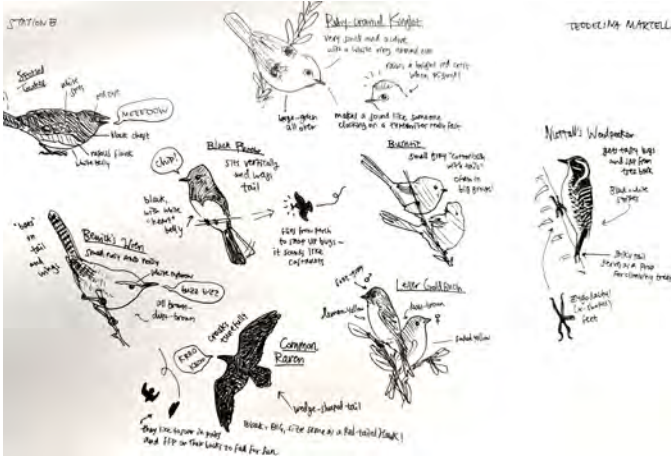 STATION B
TEODELINA MARTELL
Ruby-crowned Kinglet
very small and active
with a white ring around eye
raises a bright red crest
when
all over
makes a sound like someone
clacking on a typewriter really fast
Spotted
Towhee
white
spots
red eye
MEEEOOW
black chest
rufous flank
white belly
Black Phoebe
sits vertically
and wags
tail
chip!
black,
with white
"heart"
belly
flies from perch
to snap up bugs—
it sounds like
castanets
Bushtit
small grey "cottonballs
with tails"
often in
big groups!
Nuttall's Woodpecker
gets tasty bugs
and sap from
tree bark
Black + white
stripes
stiff tail
serves as a prop
for climbing trees
Zygodactyl
feet
Bewick's Wren
"bars"
on
tail
and
wings
small
white eyebrow
buzz buzz
all brown—
Lesser Goldfinch
lemon-yellow
♂
♀
faded yellow
Common
Raven
croaks
tunefully
KRAA
KRAA
wedge-shaped tail
Black + BIG, size same as a Red-tailed Hawk!
they like to soar in pairs
and flip on their backs to fall for fun